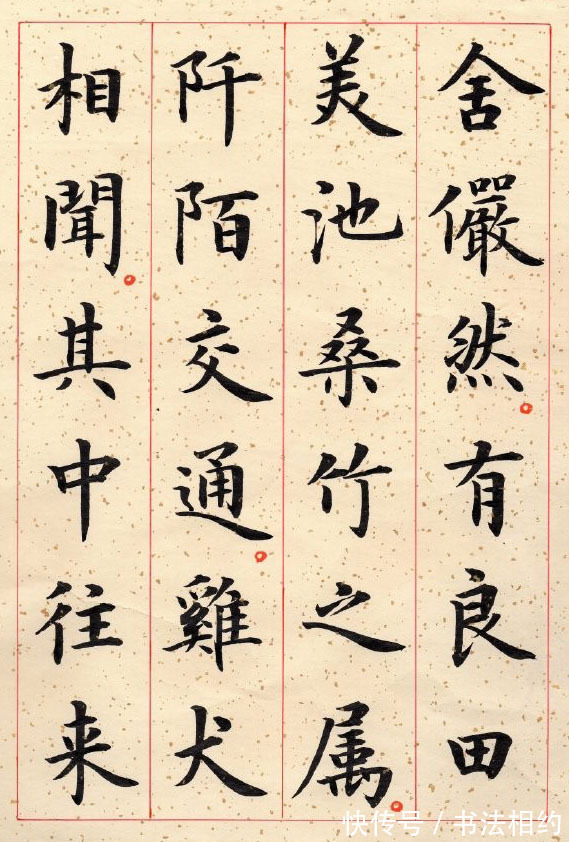 舍儼然。有良田
美池桑竹之属。
阡陌交通。雞犬
相聞。其中往来
快传号 / 书法相约